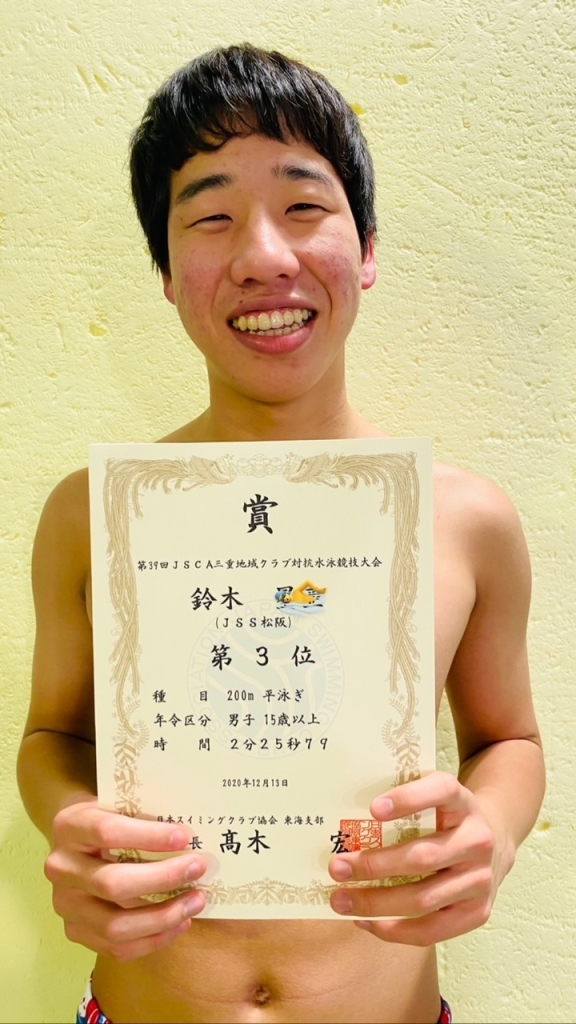 賞
第39回JSCA三重地域クラブ対抗水泳競技大会
鈴木
(JSS松阪)
第 3 位
種 目 200m 平泳ぎ
年令区分 男子 15歳以上
時 間 2分25秒79
2020年12月13日
日本スイミングクラブ協会 東海支部
長 髙木 宏